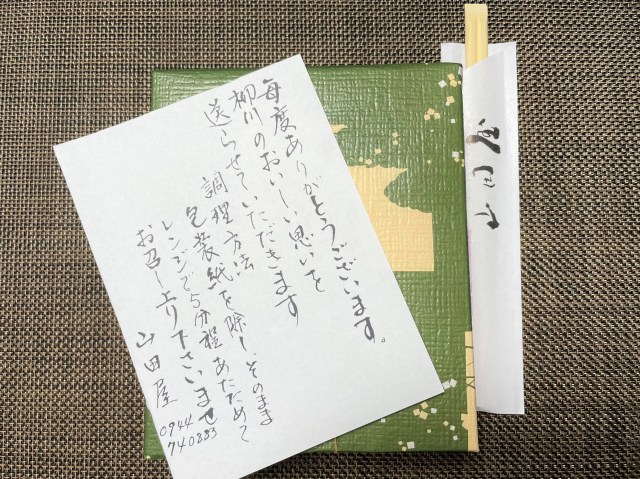 毎度ありがとうございます。
柳川のおいしい思いを
送らせていただきます
調理方法
包装紙を除し、そのまま
レンジで5分程あたためて
お召し上り下さいませ
山田屋
0944
740883
山田屋